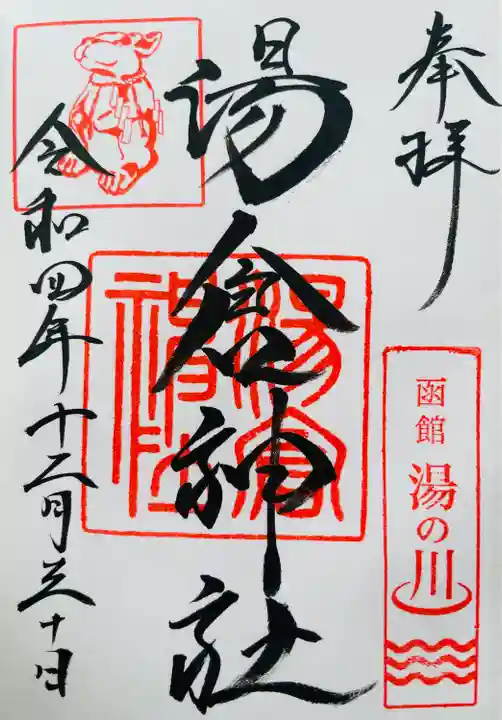 奉拝
函館 湯の川
湯倉神社
湯倉神社
令和四年十二月三十日